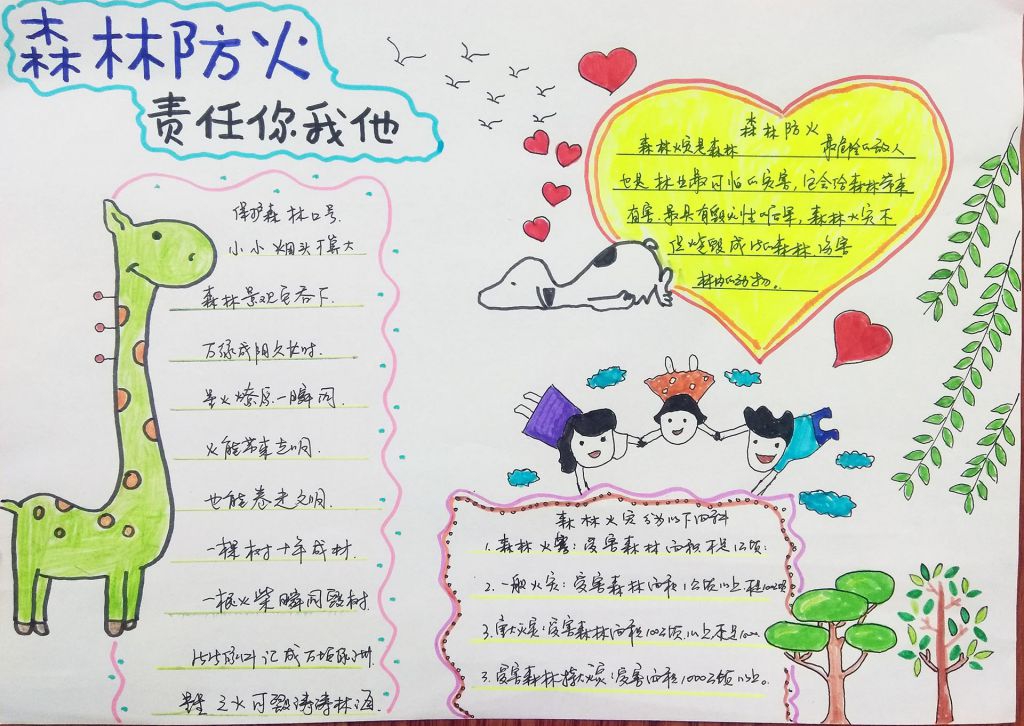 森林防火
责任你我他
保护森林口号
小小烟头千算大
森林景观它吞下.
万绿成阴久长时.
星火燎原一瞬间.
火能带来文明.
也能卷走文明.
一棵树十年成材.
一根火柴瞬间毁树
星星之火可毁涛涛林海
森林防火
森林火灾是森林 最危险的敌人
也是林业最可怕的灾害,它会给森林带来
有害.最具有毁灭性的后果,森林火灾不
但烧毁成片的森林伤害
林内的动物。
森林火灾分为以下四种
1.森林火警:受害森林面积不足1公顷:
2.一般火灾:受害森林面积1公顷以上.不足100公顷
3.重大火灾:受害森林面积100公顷以上不足1000
3.受害森林特大火灾:受害面积1000公顷以上。